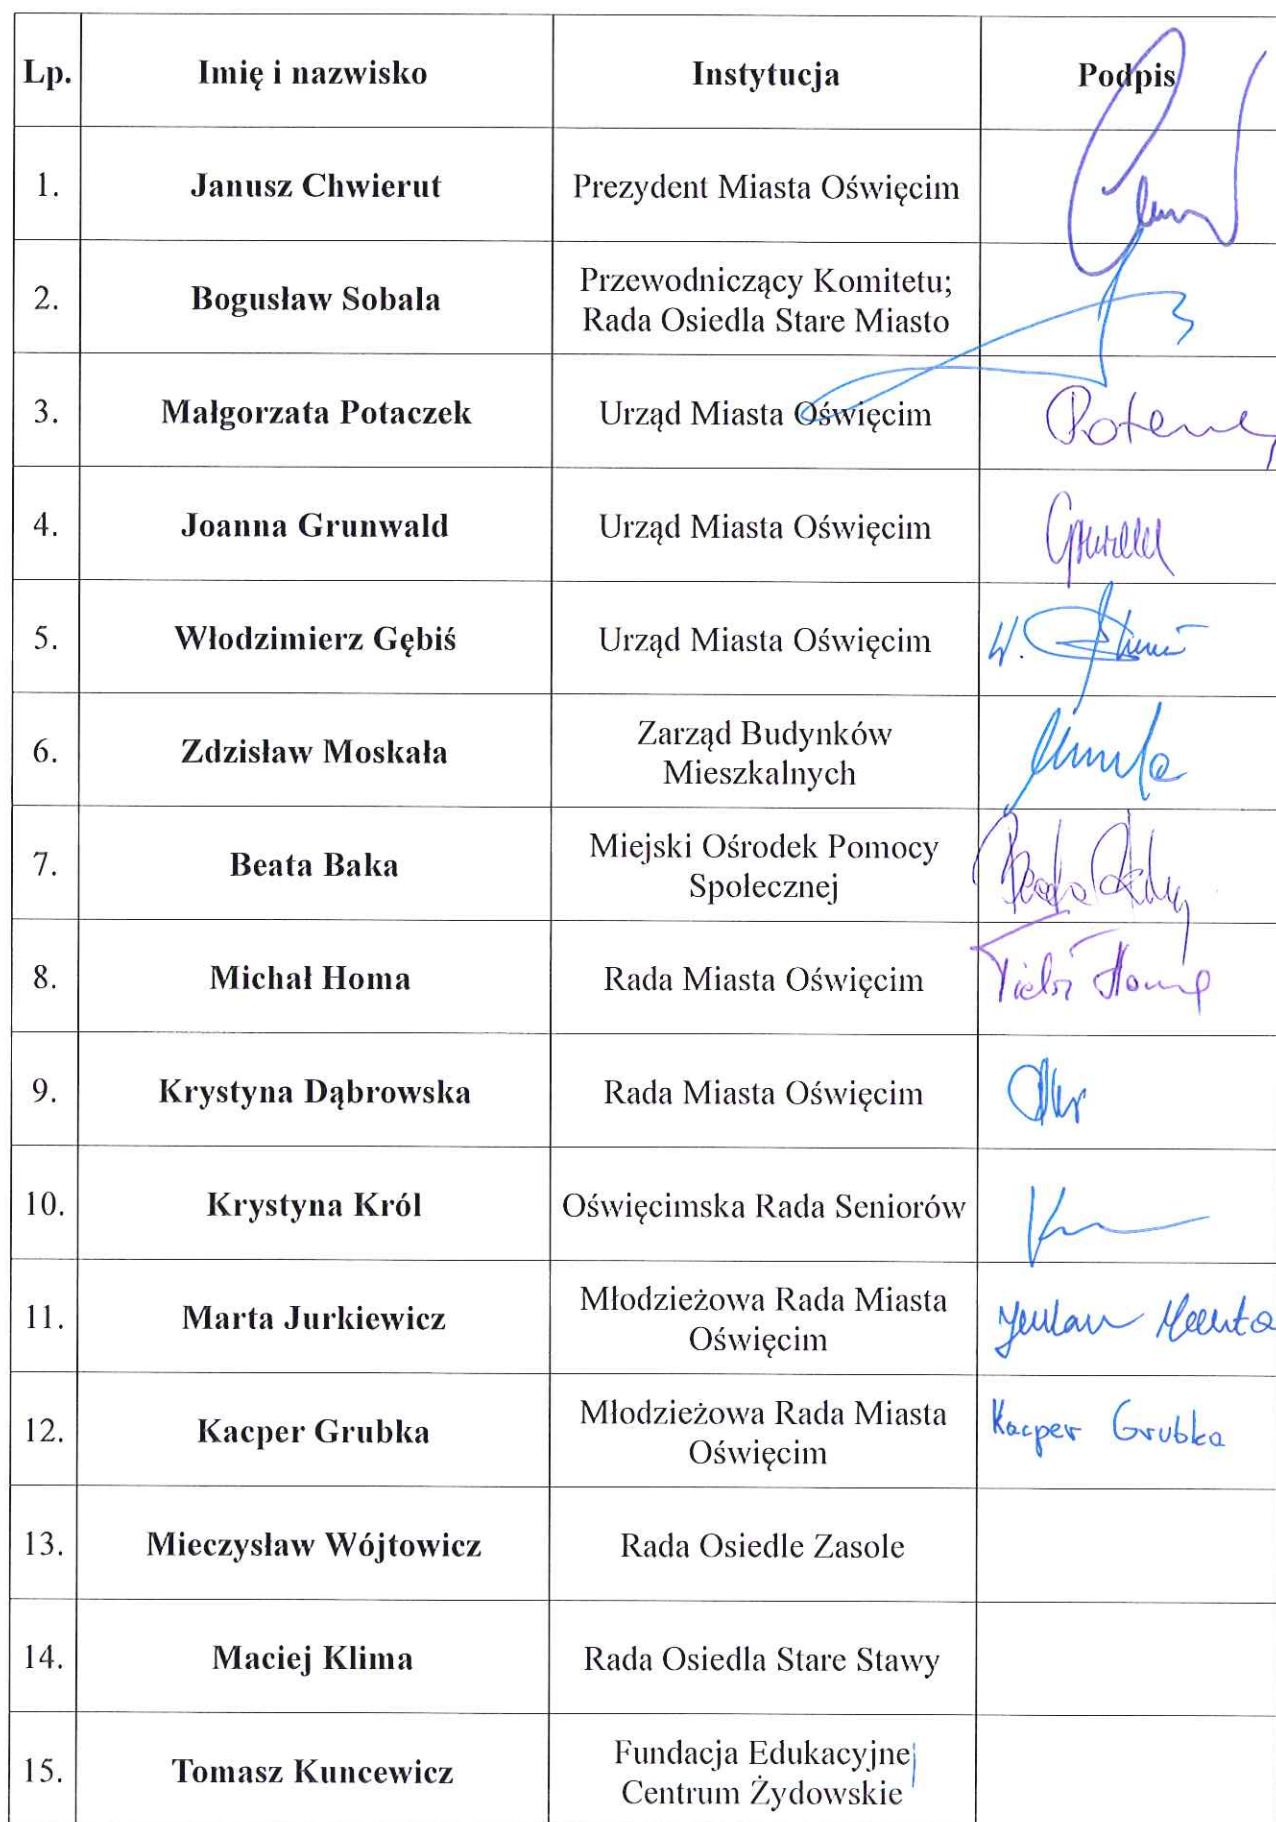 Lp. Imię i nazwisko Instytucja Podpis
1. Janusz Chwierut Prezydent Miasta Oświęcim
2. Bogusław Sobala Przewodniczący Komitetu;
Rada Osiedla Stare Miasto
3. Małgorzata Potaczek Urząd Miasta Oświęcim
4. Joanna Grunwald Urząd Miasta Oświęcim
5. Włodzimierz Gębiś Urząd Miasta Oświęcim W.
6. Zdzisław Moskała Zarząd Budynków
Mieszkalnych
7. Beata Baka Miejski Ośrodek Pomocy
Społecznej Beata
8. Michał Homa Rada Miasta Oświęcim
9. Krystyna Dąbrowska Rada Miasta Oświęcim
10. Krystyna Król Oświęcimska Rada Seniorów
11. Marta Jurkiewicz Młodzieżowa Rada Miasta
Oświęcim Marta
12. Kacper Grubka Młodzieżowa Rada Miasta
Oświęcim Kacper Grubka
13. Mieczysław Wójtowicz Rada Osiedle Zasole
14. Maciej Klima Rada Osiedla Stare Stawy
15. Tomasz Kuncewicz Fundacja Edukacyjne
Centrum Żydowskie